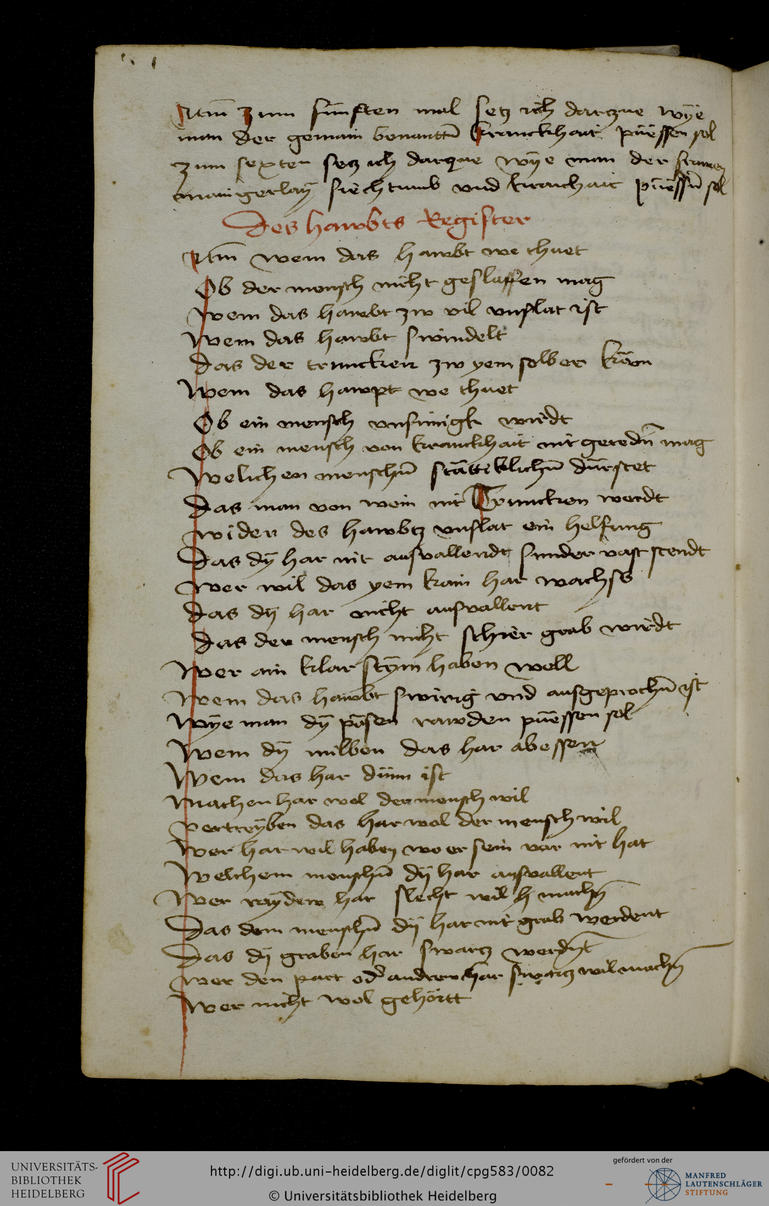 Jtm̄ zum funfften mal setz ich darzue wye
man der gemain benantn̄ kranckhait puessen sol
zum sexten setz ich darzue wye man der frawen
maingerlaÿ siechtumb vnd kranchait puessn̄ sol
Des hawbts Register
Jtm̄ wem das hawbt we thuet
Ob der mensch nicht geslaffen mag
Wem das hawbt zw vil vnflat ist
Wem das hawbt swindelt
Das der truncken zw yem selber kom
Wem das hawpt we thuet
Ob ein mensch vnsinnigk wirdt
Ob ein mensch von kranckhait nit geredn̄ mag
Welichen menschn̄ stättiklichn̄ dürstet
Das man von wein nit Truncken werdt
wider des hawbtz vnflat ein helfung
Das dÿ har nit ausvallendt sunder vast stendt
Wer wil das yem kain har wachss
Das dÿ har nicht ausvallent
Das der mensch nicht schier grab wirdt
Wer ain klar stÿrn haben well
Wem das hawbt swirig vnd ausgeprochn̄ ist
Wye man dÿ posen rawden puessen sol
Wem dÿ milben das har abessen
Wem das har dünn ist
Machen har wol der mensch wil
Vertreyben das har wol der mensch wil
Wer har wil haben wo er sein vor nit hat
Welchem menschn̄ dÿ har ausvallent
Wer raÿdew har slecht wil machn̄
Das dem menschn̄ dÿ har nit grab werdent
Das dÿ graben har swarcz werdn̄t
Wer den part oder andrew har swarcz wil machn̄
Wer nicht wol gehörtt
UNIVERSITÄTS-
BIBLIOTHEK
HEIDELBERG
http://digi.ub.uni-heidelberg.de/diglit/cpg583/0082
© Universitätsbibliothek Heidelberg
gefördert von der
MANFRED
LAUTENSCHLÄGER
STIFTUNG